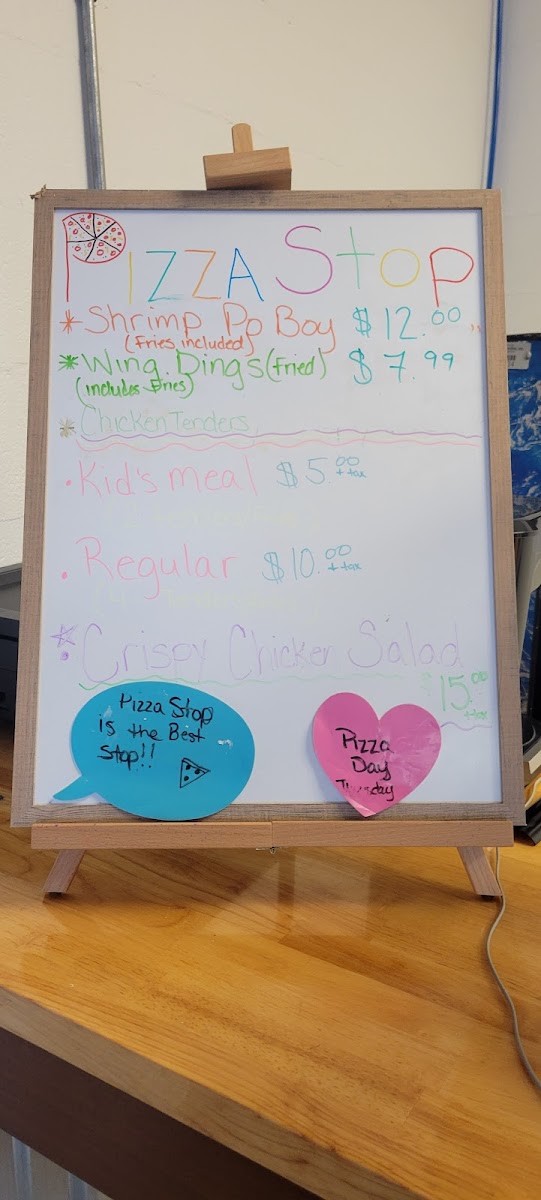 Pizza Stop
* Shrimp Po Boy $12.00
(Fries included)
* Wing Dings (Fried) $7.99
(includes Fries)
* Chicken Tenders
• Kid's meal $5.00 + tax
• Regular $10.00 + tax
Crispy Chicken Salad
$15.00
+ tax
Pizza Stop
is the Best
Stop!!
Pizza
Day